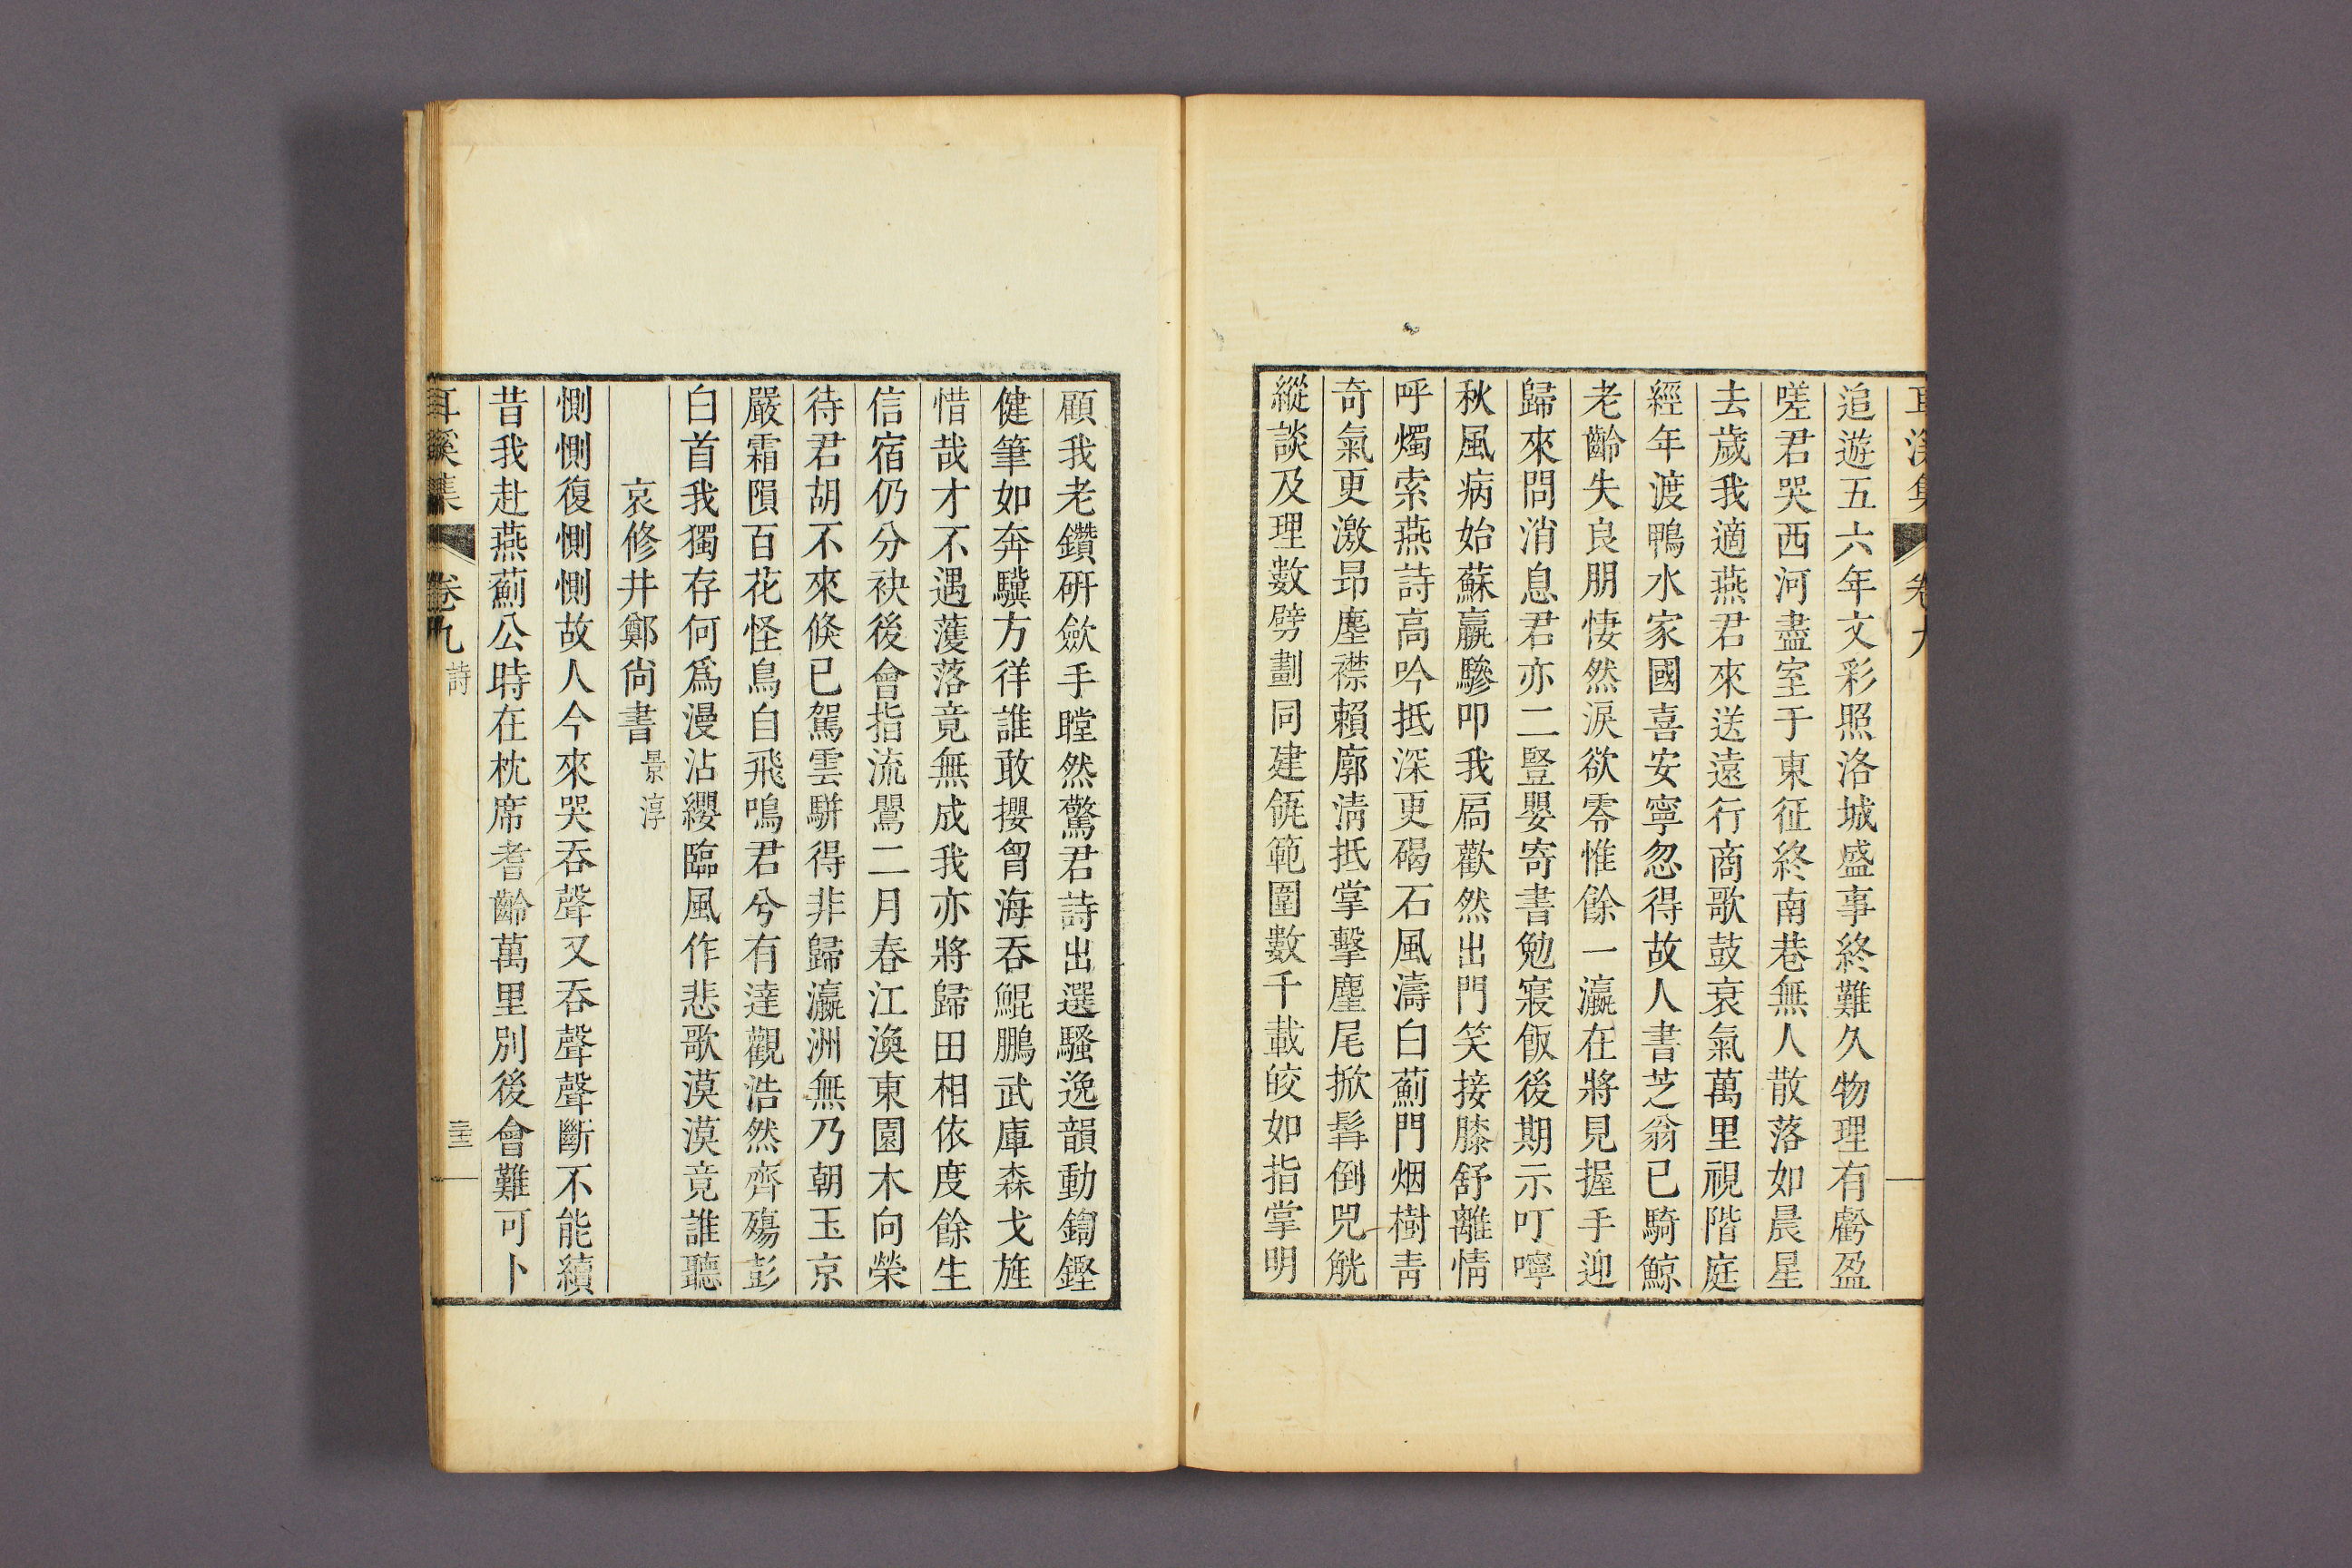 耳溪集 卷九
追遊五六年文彩照洛城盛事終難久物理有虧盈
嗟君哭西河盡室于東征終南巷無人散落如晨星
去歲我適燕君來送遠行商歌鼓衰氣萬里視階庭
經年渡鴨水家國喜安寧忽得故人書芝翁已騎鯨
老齡失良朋悽然淚欲零惟餘一瀛在將見握手迎
歸來問消息君亦二豎嬰寄書勉寢飯後期示叮嚀
秋風病始蘇羸驂叩我扃歡然出門笑接膝舒離情
呼燭索燕詩高吟抵深更碣石風濤白薊門烟樹靑
奇氣更激昂塵襟賴廓淸抵掌擊麈尾掀髯倒兕觥
縱談及理數劈劃同建瓴範圍數千載皎如指掌明
顧我老鑽硏歛手瞠然驚君詩出選騷逸韻動鏘鏗
健筆如奔驥方徉誰敢攖胷海呑鯤鵬武庫森戈旌
惜哉才不遇濩落竟無成我亦將歸田相依度餘生
信宿仍分袂後會指流鸎二月春江渙東園木向榮
待君胡不來倏已駕雲騈得非歸瀛洲無乃朝玉京
嚴霜隕百花怪鳥自飛鳴君兮有達觀浩然齊殤彭
白首我獨存何爲漫沾纓臨風作悲歌漠漠竟誰聽
哀修井鄭尙書景淳
惻惻復惻惻故人今來哭呑聲又呑聲聲斷不能續
昔我赴燕薊公時在枕席耆齡萬里別後會難可卜
耳溪集 卷九 詩